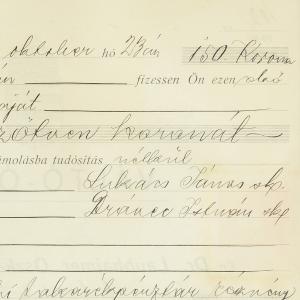 október hó 23án 150. Korona
án fizessen Ön ezen első
nját
zötven koronát
ámolásba tudósítás nélkül
Lukács János sk.
István sk
takarékpénztár részvény